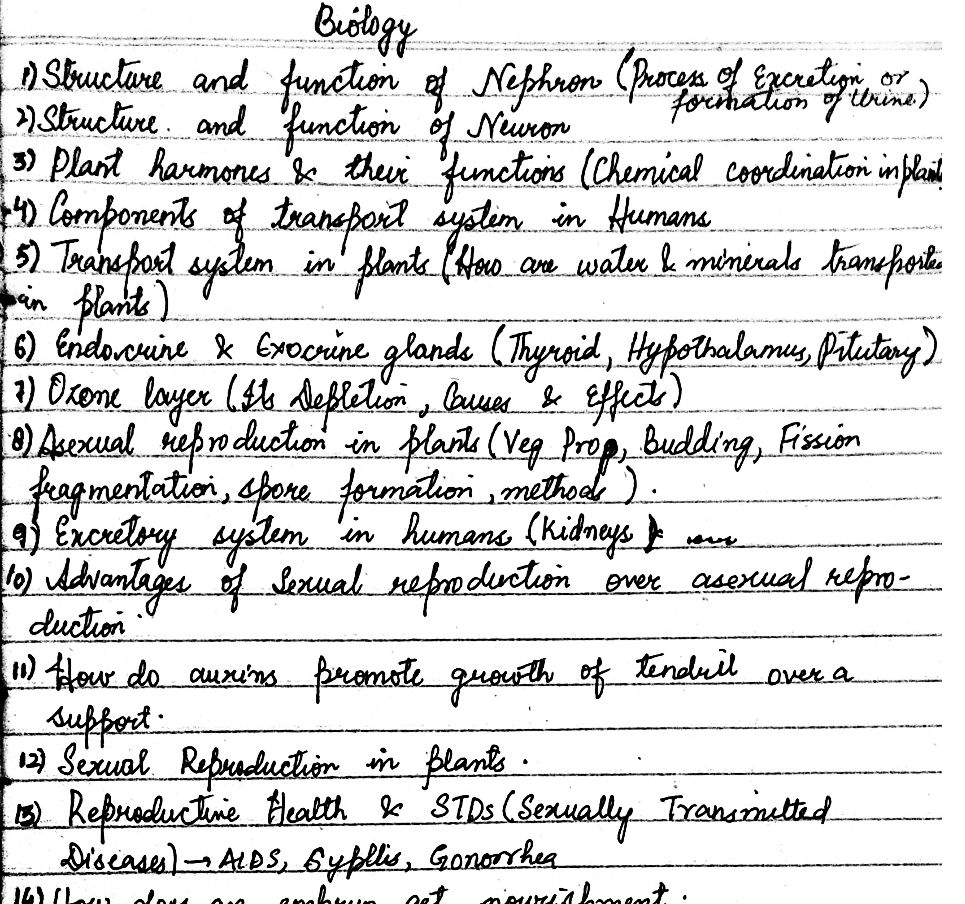 Biology
1) Structure and function of Nephron (Process of Excretion or
formation of Urine)
2) Structure. and function of Neuron
3) Plant harmones & their functions (Chemical coordination in plant
4) Components of transport system in Humans
5) Transport system in plants (How are water & minerals transporte
in plants)
6) Endocrine & Exocrine glands (Thyroid, Hypothalamus, Pitutary)
7) Ozone layer (Its Depletion, Causes & Effects)
8) Asexual reproduction in plants (Veg Prop, Budding, Fission
fragmentation, spore formation, methods).
9) Excretory system in humans (Kidneys)
10) Advantages of Sexual reproduction over asexual repro-
duction
11) How do auxins promote growth of tendril over a
support.
12) Sexual Reproduction in plants.
13) Reproductive Health & STDs (Sexually Transmitted
Diseases) → AIDS, Sypllis, Gonorrhea
14) How does an embryo get nourishment.